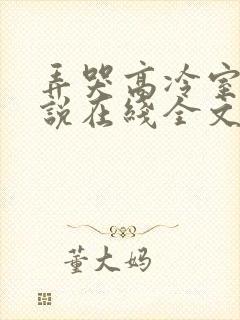 弄哭高冷室
说在线全文
董大妈